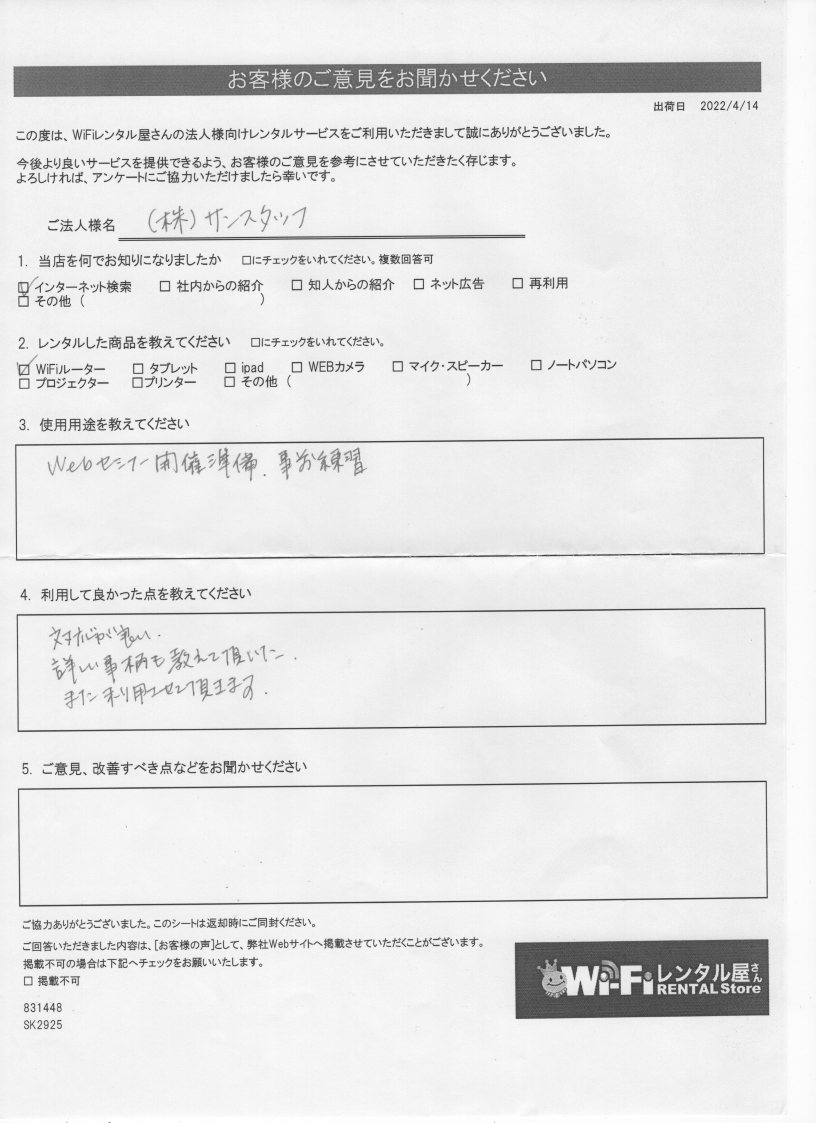 お客様のご意見をお聞かせください
出荷日 2022/4/14
この度は、WiFiレンタル屋さんの法人様向けレンタルサービスをご利用いただきまして誠にありがとうございました。
今後より良いサービスを提供できるよう、お客様のご意見を参考にさせていただきたく存じます。
よろしければ、アンケートにご協力いただけましたら幸いです。
ご法人様名 (株)サンスタッフ
1. 当店を何でお知りになりましたか □にチェックをいれてください。複数回答可
☑ インターネット検索 □ 社内からの紹介 □ 知人からの紹介 □ ネット広告 □ 再利用
□ その他 ( )
2. レンタルした商品を教えてください □にチェックをいれてください。
☑ WiFiルーター □ タブレット □ ipad □ WEBカメラ □ マイク・スピーカー □ ノートパソコン
□ プロジェクター □プリンター □ その他 ( )
3. 使用用途を教えてください
Webセミナー開催準備、事前練習
4. 利用して良かった点を教えてください
対応が良い.
詳しい事柄も教えて頂いた.
また利用させて頂きます.
5. ご意見、改善すべき点などをお聞かせください
ご協力ありがとうございました。このシートは返却時にご同封ください。
ご回答いただきました内容は、[お客様の声]として、弊社Webサイトへ掲載させていただくことがございます。
掲載不可の場合は下記へチェックをお願いいたします。
□ 掲載不可
831448
SK2925
Wi-Fiレンタル屋さん
RENTAL Store